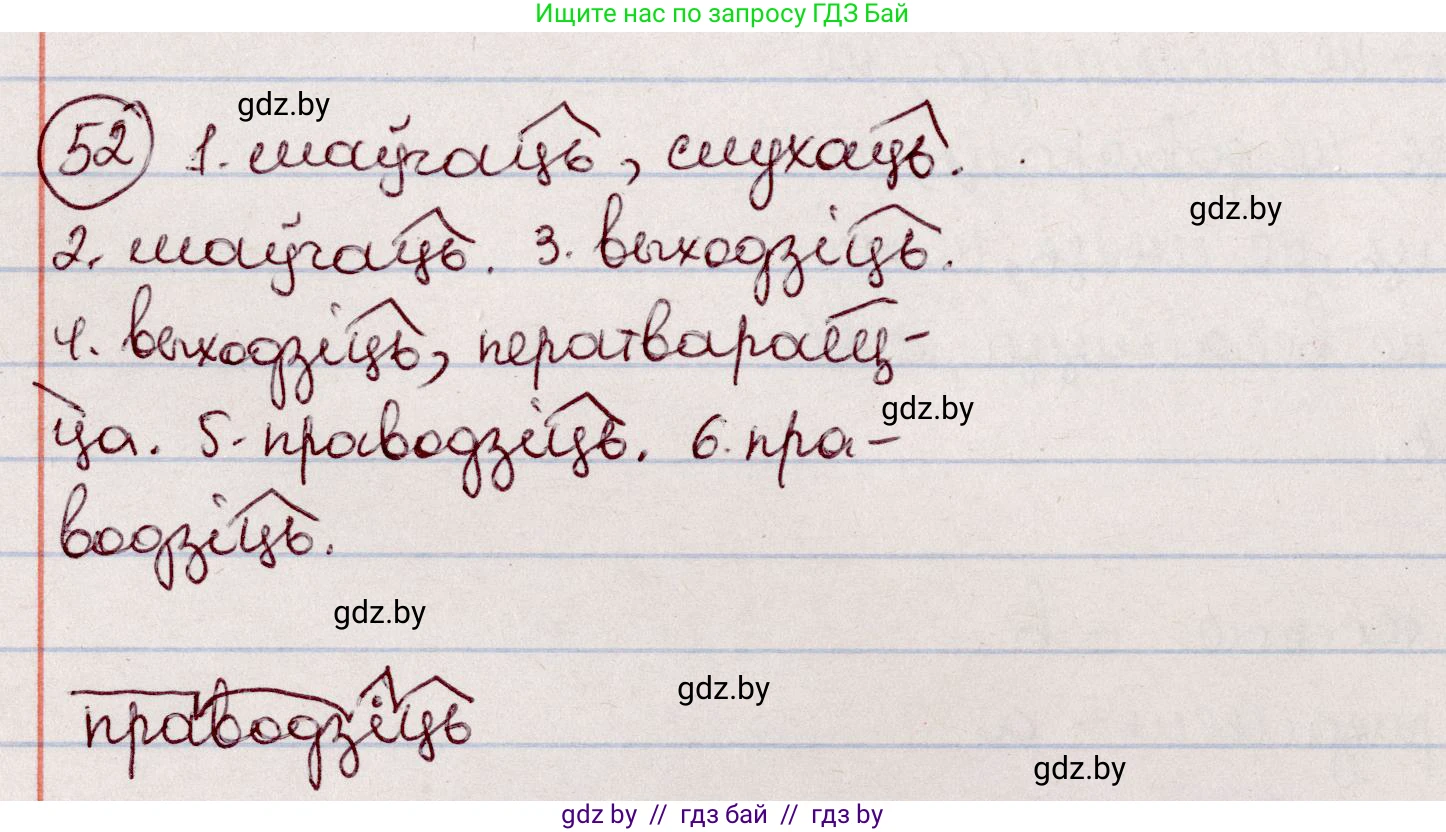 Ищите нас по запросу ГДЗ Бай
gdz.by
52 1. маўчаць, слухаць.
gdz.by
2. маўчаць. 3. выходзіць.
4. выходзіць, ператвараец-
gdz.by
ца. 5. праводзіць. 6. пра-
водзіць.
gdz.by
gdz.by
праводзіць
gdz.by
gdz by // гдз бай // гдз by